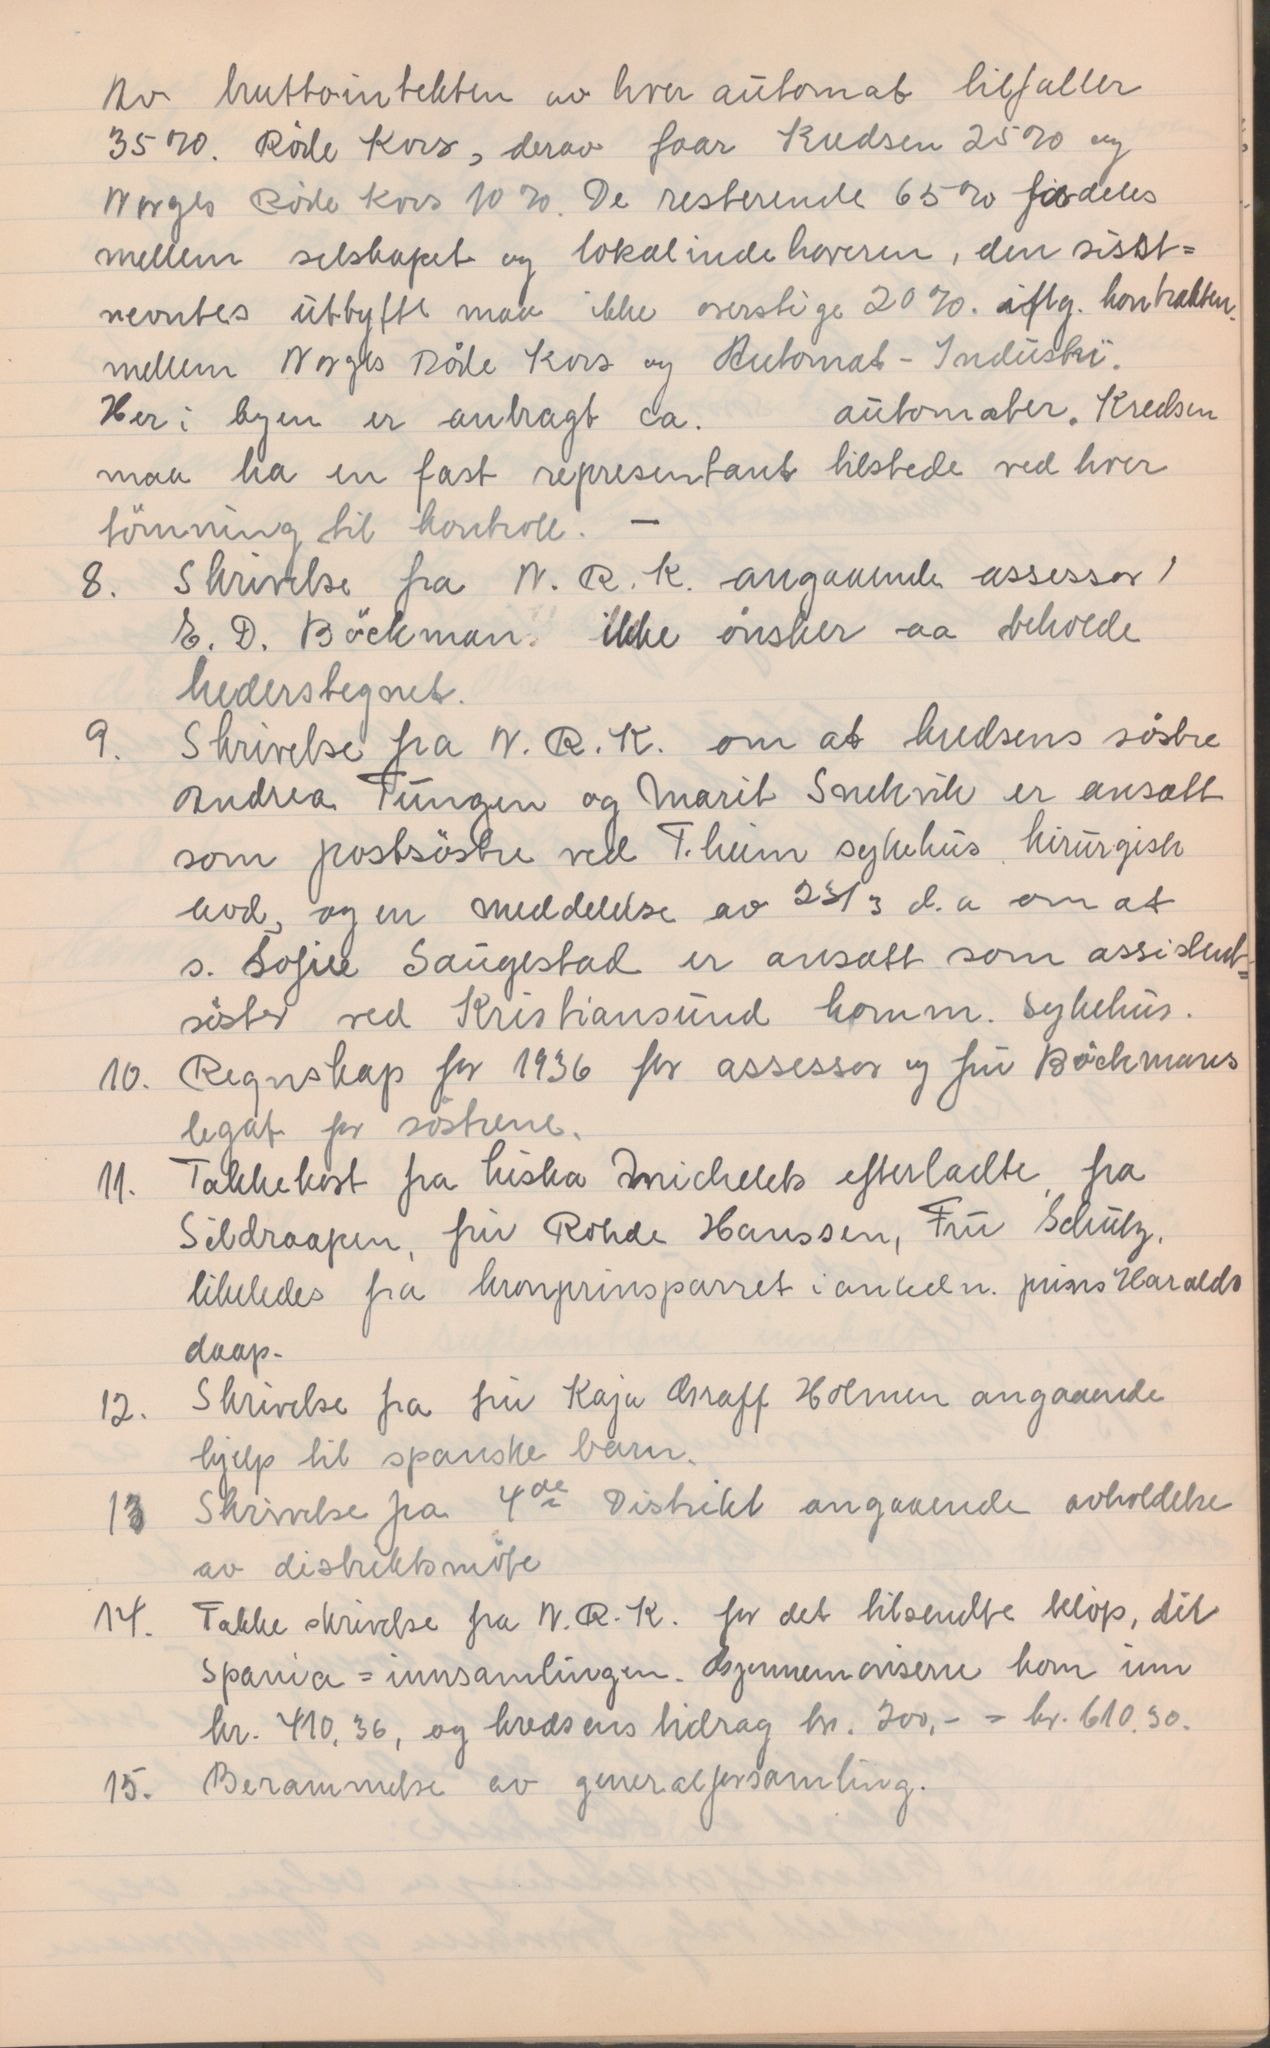 Av bruttointekten av hver automat tilfaller
35%. Røde Kors, derav faar Kredsen 25% og
Norges Røde Kors 10%. De resterende 65% fordeles
mellem selskapet og lokalindehaveren, den sisst=
nevntes utbytte maa ikke overstige 20%. iflg. kontrakten
mellem Norges Røde Kors og Automat-Industri.
Her i byen er anbragt ca. automater. Kredsen
maa ha en fast representant tilstede ved hver
tömning til kontroll. —
8. Skrivelse fra N. R. K. angaaende assessor
E. D. Böckman ikke ønsker aa beholde
hederstegnet.
9. Skrivelse fra N. R. K. om at kredsens søstre
Andrea Tungen og Marit Snekvik er ansatt
som postsöstre ved T.heim sykehus kirurgisk
avd, og en meddelelse av 23/3 d.a om at
s. Sofie Saugestad er ansatt som assistent=
söster ved Kristiansund komm. sykehus.
10. Regnskap for 1936 for assessor og fru Böckmans
legat for söstrene.
11. Takkekort fra Liska Michelets efterladte, fra
Sildraapen, fru Rohde Hanssen, Fru Schulz,
likeledes fra kronprinsparret i anledn. prins Haralds
daap.
12. Skrivelse fra fru Kaja Graff Holmen angaaende
hjelp til spanske barn.
13 Skrivelse fra 4de Distrikt angaaende avholdelse
av distriktsmöte
14. Takke skrivelse fra N.R.K. for det tilsendte belöp, til
Spania=innsamlingen. Gjennem aviserne kom inn
kr. 410,30, og kredsens bidrag kr. 200,- = kr. 610.30.
15. Berammelse av generalforsamling.